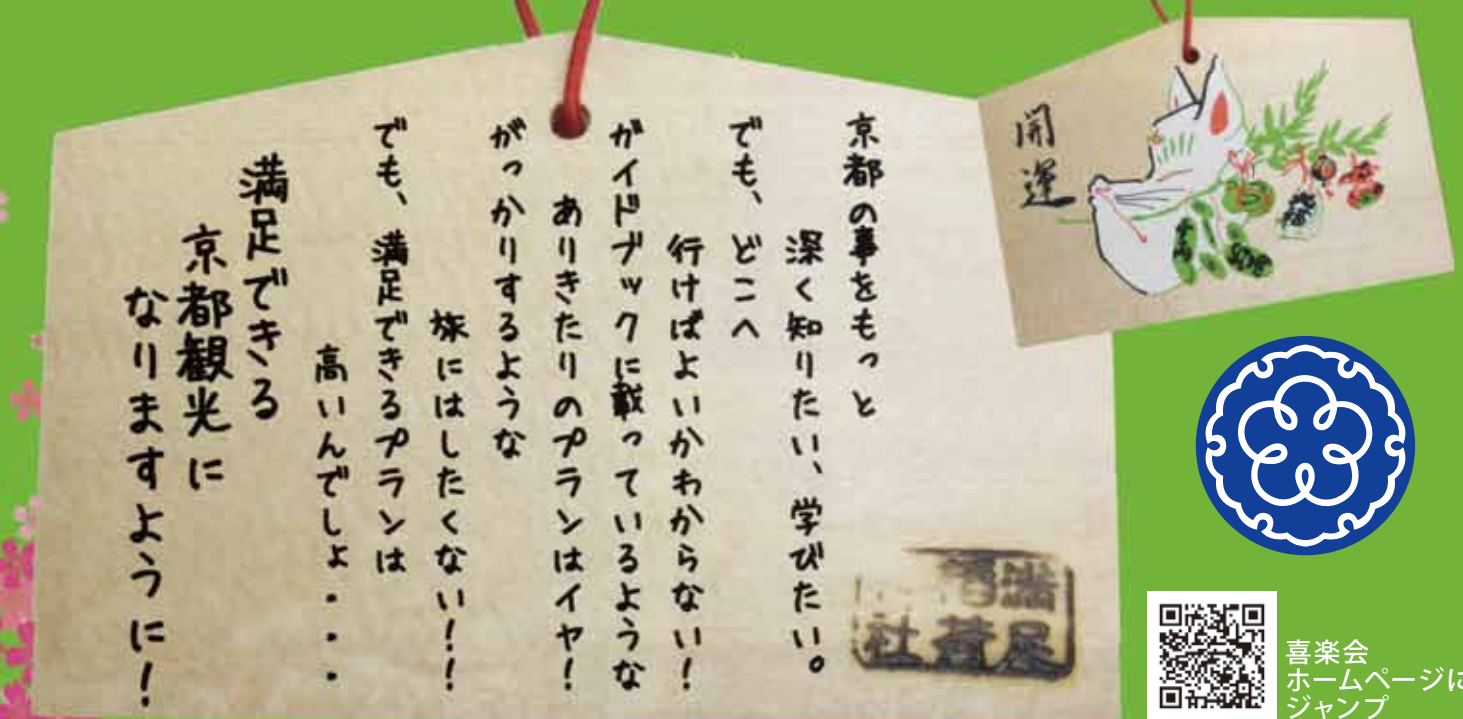 京都の事をもっと
深く知りたい、学びたい。
でも、どこへ
行けばよいかわからない!
ガイドブックに載っているような
ありきたりのプランはイヤ!
がっかりするような
旅にはしたくない!!
でも、満足できるプランは
高いんでしょ・・・
満足できる
京都観光に
なりますように!
開運
喜楽会
ホームページに
ジャンプ